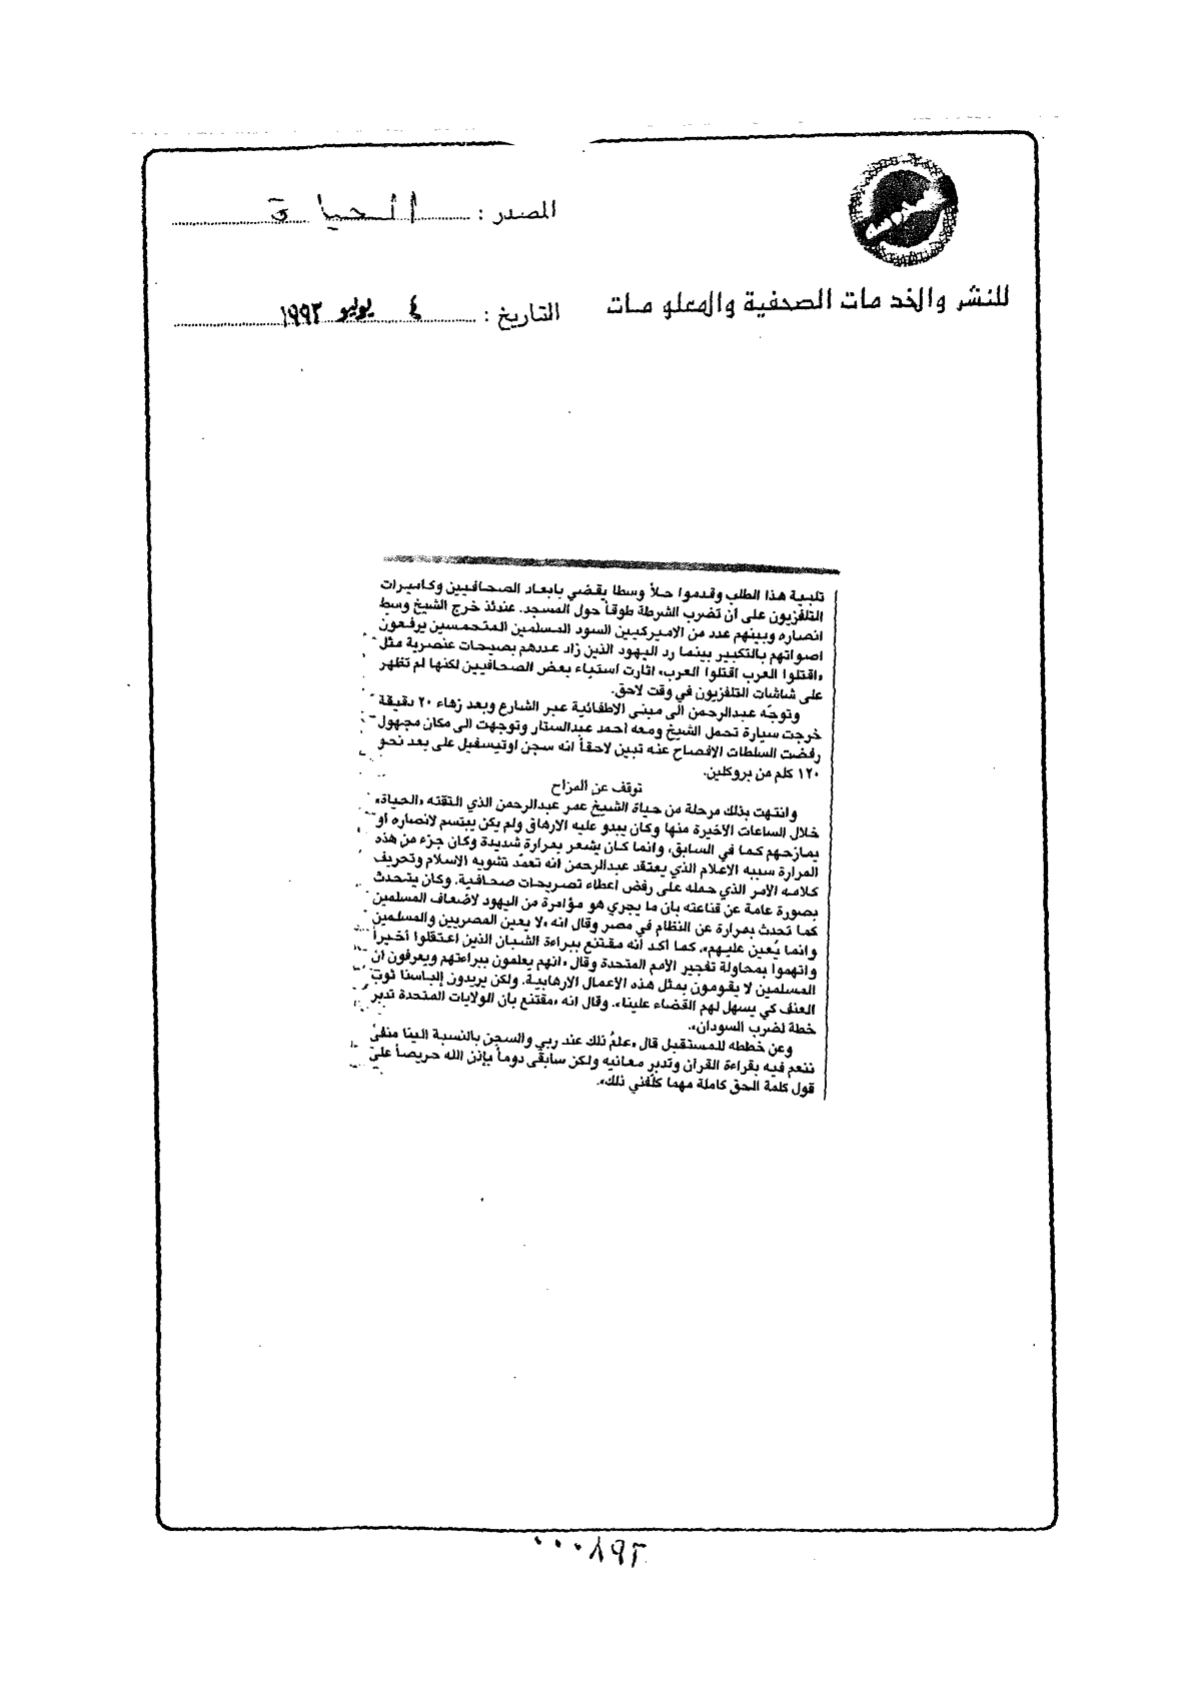 المصدر : الحياة
للنشر والخدمات الصحفية والمعلومات
التاريخ : ٤ يوليو ١٩٩٣
تلبية هذا الطلب وقدموا حلاً وسطا يقضي بابعاد الصحافيين وكاميرات
التلفزيون على ان تضرب الشرطة طوقاً حول المسجد. عندئذ خرج الشيخ وسط
انصاره وبينهم عدد من الاميركيين السود المسلمين المتحمسين يرفعون
اصواتهم بالتكبير بينما رد اليهود الذين زاد عددهم بصيحات عنصرية مثل
«اقتلوا العرب اقتلوا العرب» اثارت استياء بعض الصحافيين لكنها لم تظهر
على شاشات التلفزيون في وقت لاحق.
وتوجّه عبدالرحمن الى مبنى الاطفائية عبر الشارع وبعد زهاء ٢٠ دقيقة
خرجت سيارة تحمل الشيخ ومعه احمد عبدالستار وتوجهت الى مكان مجهول
رفضت السلطات الافصاح عنه تبين لاحقاً انه سجن اوتيسفيل على بعد نحو
١٢٠ كلم من بروكلين.
توقف عن المزاح
وانتهت بذلك مرحلة من حياة الشيخ عمر عبدالرحمن الذي التقته «الحياة»
خلال الساعات الاخيرة منها وكان يبدو عليه الارهاق ولم يكن يبتسم لانصاره او
يمازحهم كما في السابق، وانما كان يشعر بمرارة شديدة وكان جزء من هذه
المرارة سببه الاعلام الذي يعتقد عبدالرحمن انه تعمّد تشويه الاسلام وتحريف
كلامه الامر الذي حمله على رفض اعطاء تصريحات صحافية. وكان يتحدث
بصورة عامة عن قناعته بان ما يجري هو مؤامرة من اليهود لاضعاف المسلمين
كما تحدث بمرارة عن النظام في مصر وقال انه «لا يعين المصريين والمسلمين
وانما يُعين عليهم». كما اكد انه مقتنع ببراءة الشبان الذين اعتقلوا اخيراً
واتهموا بمحاولة تفجير الامم المتحدة وقال «انهم يعلمون ببراءتهم ويعرفون ان
المسلمين لا يقومون بمثل هذه الاعمال الارهابية. ولكن يريدون إلباسنا ثوب
العنف كي يسهل لهم القضاء علينا». وقال انه «مقتنع بان الولايات المتحدة تدبر
خطة لضرب السودان».
وعن خططه للمستقبل قال «علمُ ذلك عند ربي والسجن بالنسبة الينا منفىً
ننعم فيه بقراءة القرآن وتدبر معانيه ولكن سابقى دوماً بإذن الله حريصاً على
قول كلمة الحق كاملة مهما كلّفني ذلك».
٠٠٠٨٩٢